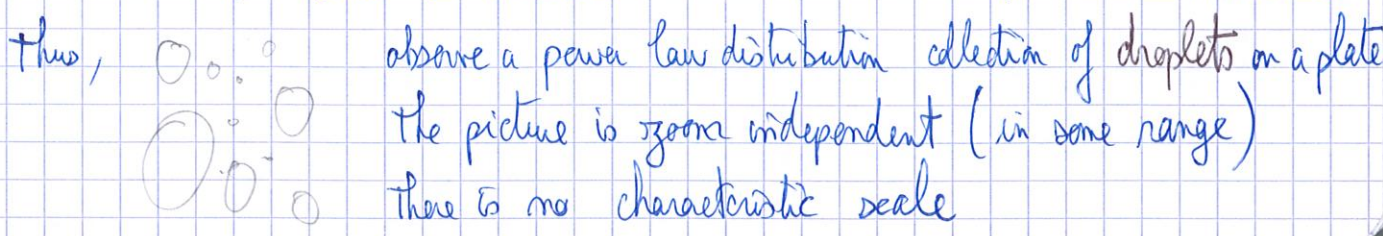 thus, observe a power law distribution collection of droplets on a plate
the picture is zoom independent (in some range)
there is no characteristic scale